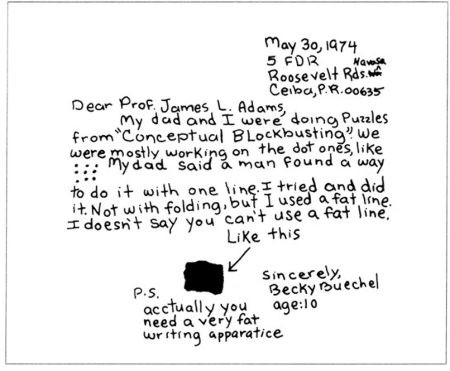 May 30, 1974
5 FDR Navasa
Roosevelt Rds.
Ceiba, P.R. 00635
Dear Prof. James L. Adams,
My dad and I were doing Puzzles
from "Conceptual Blockbusting". We
were mostly working on the dot ones, like
My dad said a man found a way
to do it with one line. I tried and did
it. Not with folding, but I used a fat line.
I doesn't say you can't use a fat line.
Like this
sincerely,
Becky Buechel
age:10
P.S.
acctually you
need a very fat
writing apparatice